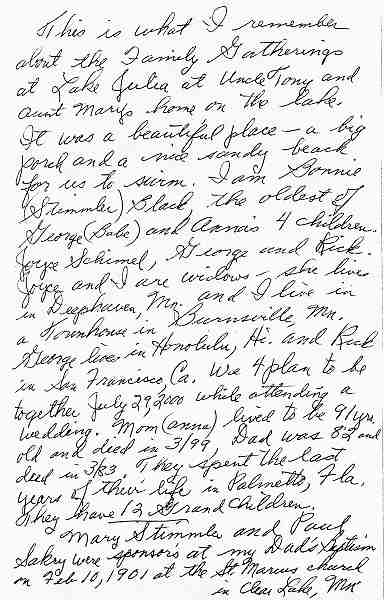 This is what I remember
about the Family Gatherings
at Lake Julia at Uncle Tony and
aunt Marys home on the lake.
It was a beautiful place - a big
porch and a nice sandy beach
for us to swim. I am Bonnie
(Stimmler) Slack the oldest of
George (Babe) and Anna's 4 children.
Joyce Schimel, George and Rick.
Joyce and I are widows - she lives
in Deephaven, Mn. and I live in
a Townhouse in Burnsville, Mn.
George lives in Honolulu, Hi. and Rick
in San Francisco, Ca. We 4 plan to be
together July 29, 2000 while attending a
wedding. Mom (anna) lived to be 91 yrs.
old and died in 3/99, Dad was 82 and
died in 3/83. They spent the last
years of their life in Palmetto, Fla.
They have 12 Grand Children.
Mary Stimmler and Paul
Sakry were sponsors at my Dad's Baptism
on Feb 10, 1901 at the St Marcus church
in Clear Lake, Mn